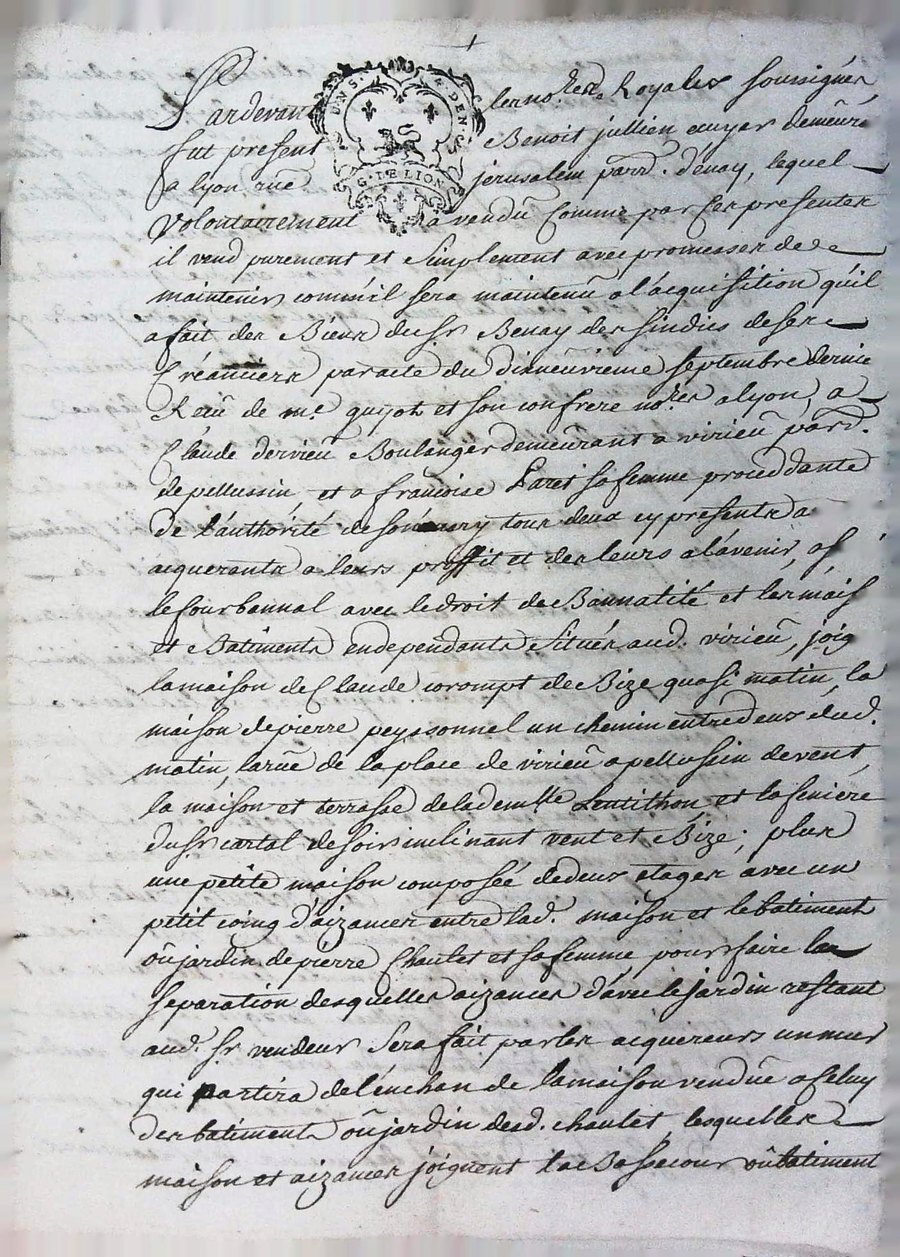 Pardevant les no.res Royales soussignés
fut present Benoit jullien ecuyer demeûrt
a lyon ruë jerusalem parr. d'énay, lequel
Volontairement a vendû comme par ces presentes
il vend purement et simplement avec promesses de
maintenir comm'il sera maintenû a l'acquisition qu'il
a fait des Biens du Sr Benay des sindics de ses
Créanciers par acte du disneuvieme septembre dernier
Receû de me. guyot et son confrere no.res a lyon, a
Claude dervieû Boulanger demeûrant a virieû parr.
de pellussin et a françoise Paret sa femme proceddante
de l'authorité de son mary tous deux cy presents a
acquerants a leurs proffit et des leurs a l'avenir,
le four bannal avec le droit de Bannalité et les mais
et Batiments en dependants Situés aud. virieû, joig
la maison de Claude corompt de Bize quasi matin, la
maison de pierre peyssonnel un chemin entredeux dud.
matin, la ruë de la place de virieû a pellussin de vent,
la maison et terrasse de la demlle Lentithon et la feniere
du Sr cartal de soir inclinant vent et Bize; plus
une petite maison composée de deux etages avec un
petit coing d'aizances entre lad. maison et le batiment
oû jardin de pierre Chaulet et sa femme pour faire la
separation desquelles aizances d'avec le jardin restant
aud. Sr vendeur Sera fait par les acquereurs un mur
qui partira de l'enchan de la maison vendûe a celuy
des batiments oû jardin desd. chaulet, lesquelles
maison et aizances joignent la Basse cour oû batiment
G. DE LION